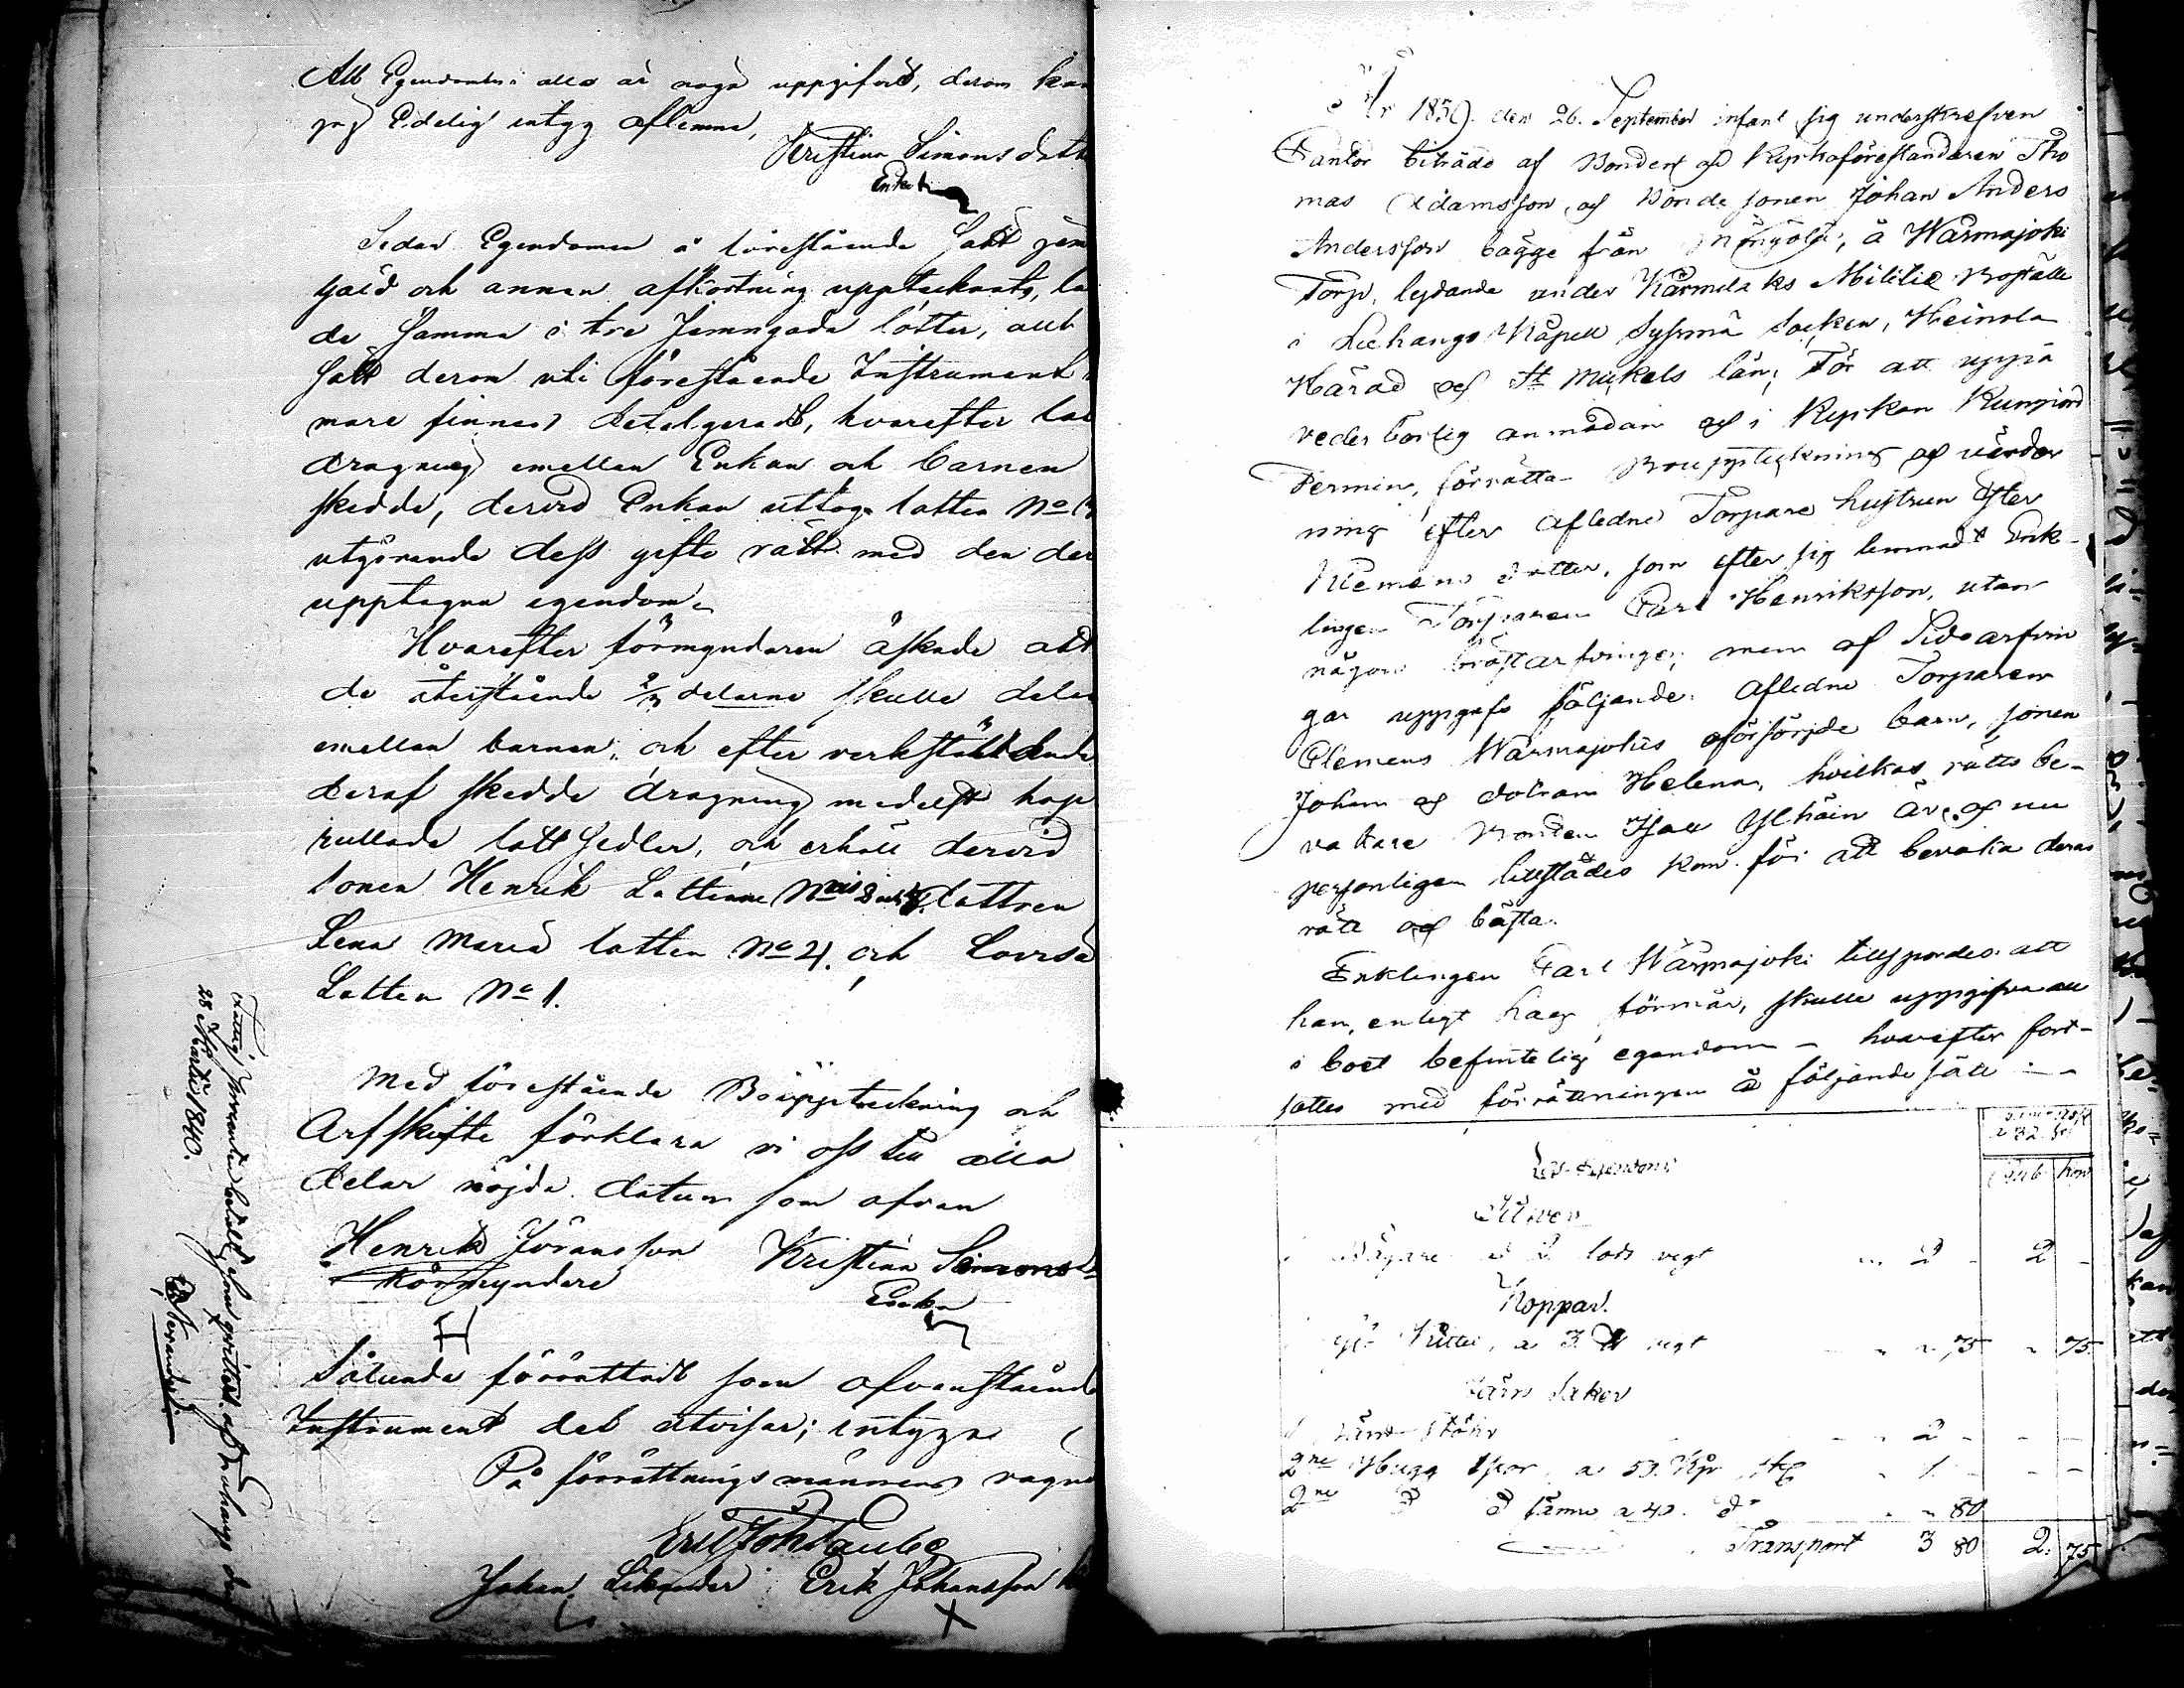 Att Egendomen i allo är noga uppgifvit, derom kan
jag Edelig intyg aflemna,
Kristina Simons dotte
Enka
Sedan Egendomen å förestående sätt jem
gäld och annan afkortning upptecknats, la
de samma i tre jemngada lotter, allt
sätt derom uti förestående Instrument
mare finnes detalgeradt, hvarefter lot
dragning emellan Enkan och barnen
skedde, dervid Enkan uttog lotten No 3
utgörande dess gifto rätt med den der
upptagna egendom.
Hvarefter förmyndaren äskade att
de återstående 2/3 delarne skulle delas
emellan barnen, och efter verkställdande
deraf skedde dragning medelst hop
rullade lott sedlar, och erhöll dervid
sonen Henrik Lotterne No dottren
Lena Maria lotten No 4. och Lovisa
Lotten No 1.
Med förestående Bouppteckning och
Arfskifte förklara vi oss till alla
delar nöjda. datum som ofvan
Henrik Jöransson Kristina Simons
Förmyndare Enka
Sålunda förrättadt som ofvanstående
Instrument det utvisar; intyga
På förrättnings männens vagnar
Johan Erik Johansson
28 Martii 1840.
År 1839. den 26. September infant sig underskrefven
Cantor biträdd af Bonden och Kyrkoföreståndaren Tho
mas Adamsson och Bonde sonen Johan Anders
Andersson bägge från å Wärmajoki
Torp, lydande under Kärmelaks Militie Boställe
i Luhango Kapell Sysmä Socken, Heinola
Härad och St Mickels län; För att uppå
vederbörlig anmodan och i Kyrkan Kungjord
Termin, förrätta Bouppteckning och värder
ning efter afledne Torpare hustrun Ester
Klemens dotter, som efter sig lemnadt Enk-
lingen Torparen Carl Henriksson, utan
någon bröstarfvinge, men af Sidoarfvin
gar uppgafs följande: afledne Torparen
Clemens Wärmajokis oförsörjde barn, sonen
Johan och dotran Helena, hvilkas rätts be-
vakare Bonden är och nu
personligen tillstädes kom för att bevaka deras
rätt och bästa.
Enklingen Carl Wärmajoki tillspordes att
han, enligt hag förmår, skulle uppgifva all
i boet befintelig egendom – hvarefter fort-
sattes med förrättningen å följande sätt –
Rub Kop
Lös Egendom
Silfver
Bägare a 2 lods vigt 2 2
Koppar.
a 3 ℔ vigt 75 75.
Järn Saker
2
2ne Hugg a 50. Kop 1
2ne d d sämre a 40. d 80
Transport 3 80 2. 75